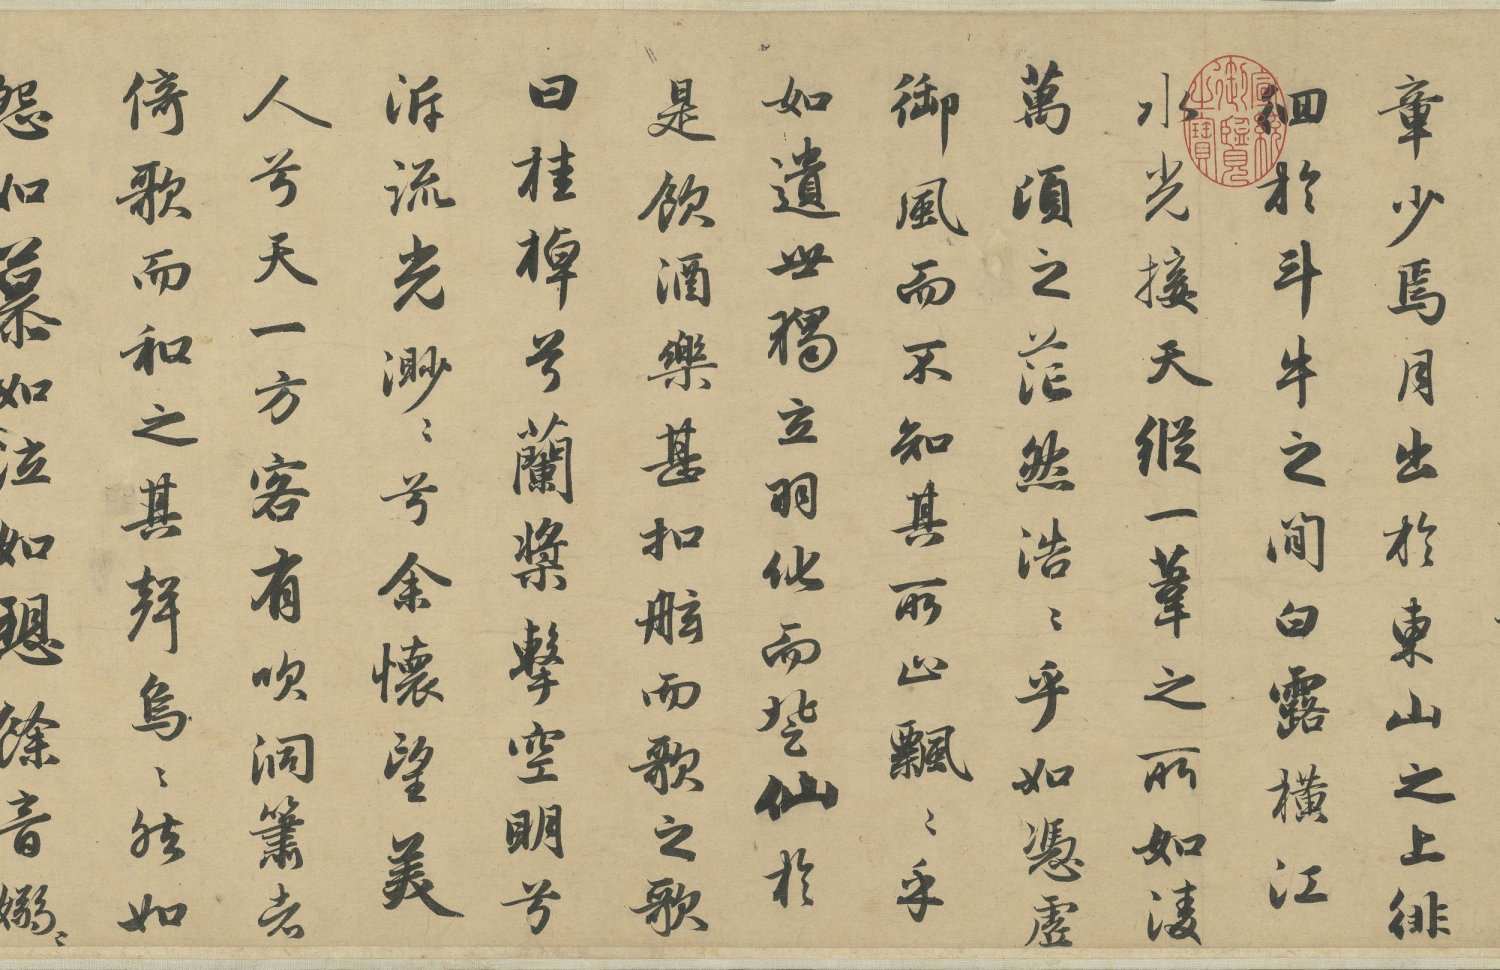 章少焉月出於東山之上徘
徊於斗牛之間白露橫江
水光接天縱一葦之所如淩
萬頃之茫然浩〻乎如憑虛
御風而不知其所止飄〻乎
如遺世獨立羽化而登仙於
是飲酒樂甚扣舷而歌之歌
曰桂棹兮蘭槳擊空明兮
泝流光渺〻兮余懷望美
人兮天一方客有吹洞簫者
倚歌而和之其聲烏〻然如
怨如慕如泣如䛠餘音嫋〻
宣統御覽之寶